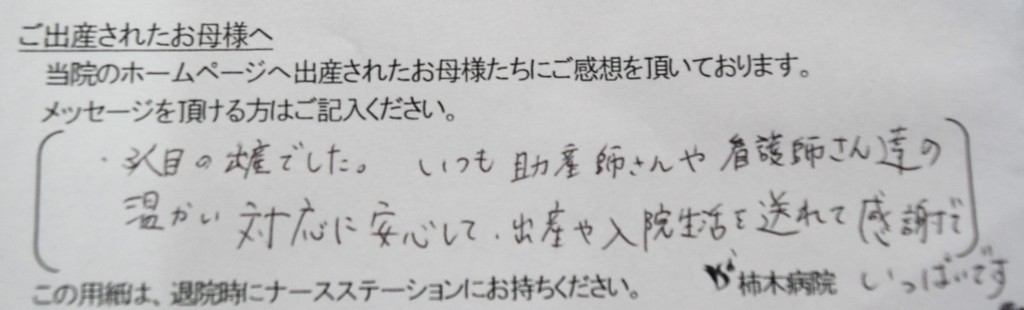 ご出産されたお母様へ
当院のホームページへ出産されたお母様たちにご感想を頂いております。
メッセージを頂ける方はご記入ください。
・3人目の出産でした。 いつも助産師さんや看護師さん達の
温かい対応に安心して、出産や入院生活を送れて感謝で
いっぱいです
この用紙は、退院時にナースステーションにお持ちください。 柿木病院